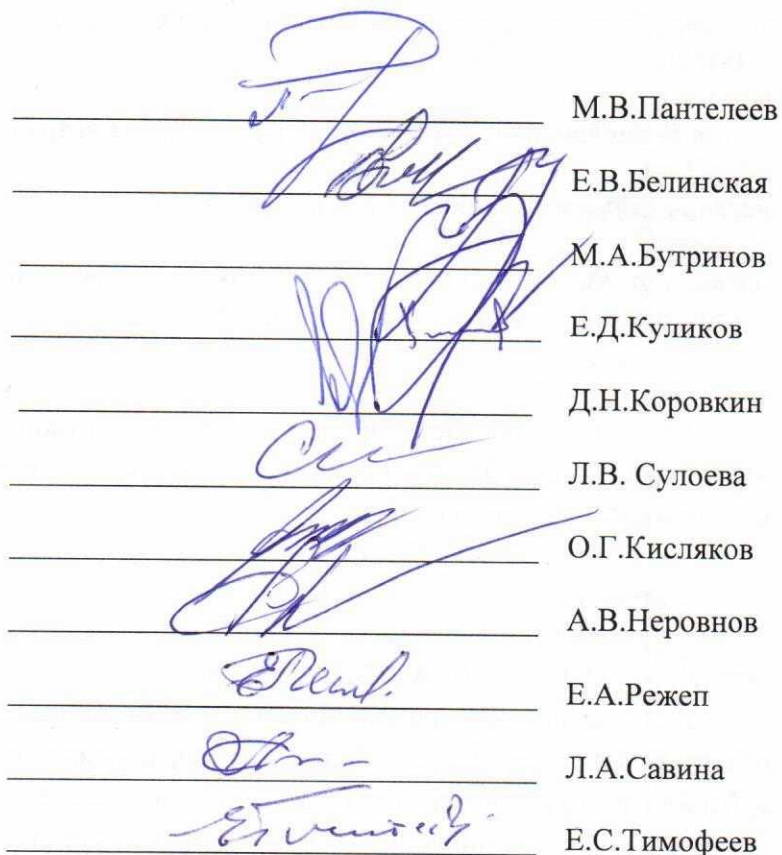 М.В.Пантелеев
Е.В.Белинская
М.А.Бутринов
Е.Д.Куликов
Д.Н.Коровкин
Л.В. Сулоева
О.Г.Кисляков
А.В.Неровнов
Е.А.Режеп
Л.А.Савина
Е.С.Тимофеев